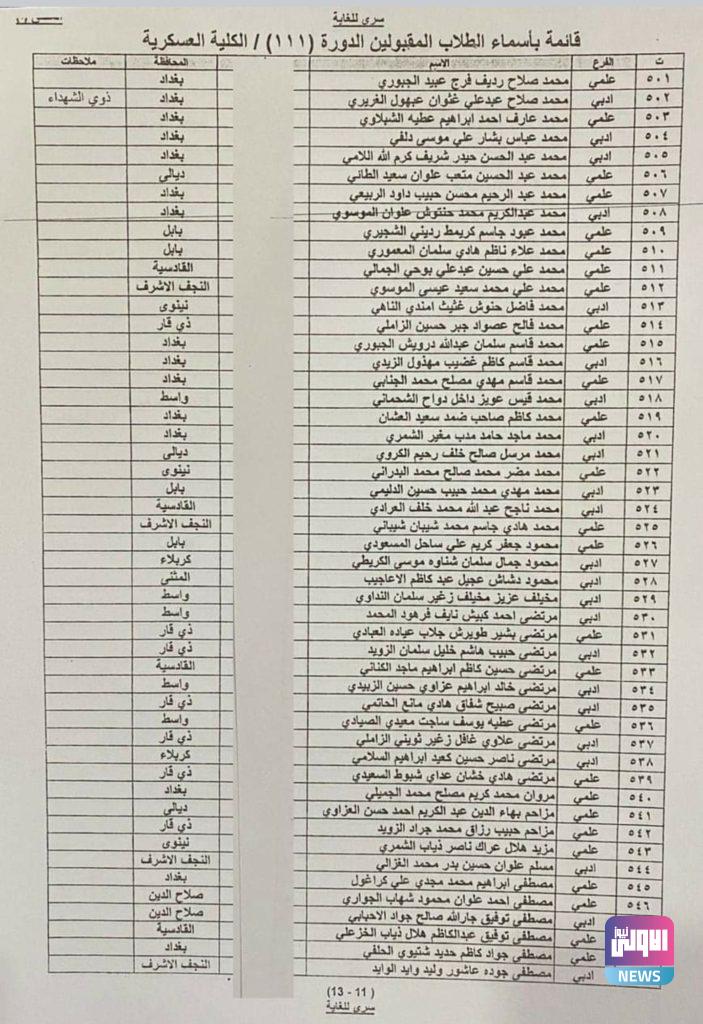 سري للغاية
قائمة بأسماء الطلاب المقبولين الدورة (١١١) / الكلية العسكرية
ت الفرع الاسم المحافظة ملاحظات
٥٠١ علمي محمد صلاح رديف فرج عبيد الجبوري بغداد
٥٠٢ ادبي محمد صلاح عبدعلي غثوان عبهول الغريري بغداد ذوي الشهداء
٥٠٣ علمي محمد عارف احمد ابراهيم عطيه الشبلاوي بغداد
٥٠٤ ادبي محمد عباس بشار علي موسى دلفي بغداد
٥٠٥ ادبي محمد عبد الحسن حيدر شريف كرم الله اللامي بغداد
٥٠٦ علمي محمد عبد الحسين متعب علوان سعيد الطائي ديالى
٥٠٧ علمي محمد عبد الرحيم محسن حبيب داود الربيعي بغداد
٥٠٨ ادبي محمد عبدالكريم محمد حنتوش علوان الموسوي بغداد
٥٠٩ علمي محمد عبود جاسم كريمط رديني الشجيري بابل
٥١٠ علمي محمد علاء ناظم هادي سلمان المعموري بابل
٥١١ علمي محمد علي حسين عبدعلي بوحي الجمالي القادسية
٥١٢ علمي محمد علي محمد سعيد عيسى الموسوي النجف الاشرف
٥١٣ ادبي محمد فاضل حنوش غثيث امندي الناهي نينوى
٥١٤ علمي محمد فالح عصواد جبر حسين الزاملي ذي قار
٥١٥ علمي محمد قاسم سلمان عبدالله درويش الجبوري بغداد
٥١٦ ادبي محمد قاسم كاظم غضيب مهذول الزيدي بغداد
٥١٧ علمي محمد قاسم مهدي مصلح محمد الجنابي بغداد
٥١٨ ادبي محمد قيس عويز داخل دواح الشحماني واسط
٥١٩ علمي محمد كاظم صاحب ضمد سعيد العشان بغداد
٥٢٠ ادبي محمد ماجد حامد مدب مغير الشمري بغداد
٥٢١ ادبي محمد مرسل صالح خلف رحيم الكروي ديالى
٥٢٢ علمي محمد مضر محمد صالح محمد البدراني نينوى
٥٢٣ ادبي محمد مهدي محمد حبيب حسين الدليمي بابل
٥٢٤ ادبي محمد ناجح عبد الله محمد خلف العرادي القادسية
٥٢٥ علمي محمد هادي جاسم محمد شيبان شيباني النجف الاشرف
٥٢٦ علمي محمود جعفر كريم علي ساحل المسعودي بابل
٥٢٧ ادبي محمود جمال سلمان شناوه موسى الكريطي كربلاء
٥٢٨ ادبي محمود دشاش عجيل عبد كاظم الاعاجيب المثنى
٥٢٩ ادبي مخيلف عزيز مخيلف زغير سلمان النداوي واسط
٥٣٠ ادبي مرتضى احمد كبيش نايف فرهود المحمد واسط
٥٣١ علمي مرتضى بشير طويرش جلاب عياده العبادي ذي قار
٥٣٢ ادبي مرتضى حبيب هاشم خليل سلمان الزويد ذي قار
٥٣٣ علمي مرتضى حسين كاظم ابراهيم ماجد الكناني القادسية
٥٣٤ ادبي مرتضى خالد ابراهيم عزاوي حسين الزبيدي واسط
٥٣٥ ادبي مرتضى صبيح شفاق هادي مانع الحاتمي ذي قار
٥٣٦ علمي مرتضى عطيه يوسف ساجت معيدي الصيادي واسط
٥٣٧ ادبي مرتضى علاوي غافل زغير ثويني الزاملي ذي قار
٥٣٨ ادبي مرتضى ناصر حسين كعيد ابراهيم السلامي كربلاء
٥٣٩ علمي مرتضى هادي خشان عداي شبوط السعيدي ذي قار
٥٤٠ علمي مروان محمد كريم مصلح محمد الجميلي بغداد
٥٤١ علمي مزاحم بهاء الدين عبد الكريم احمد حسن العزاوي ديالى
٥٤٢ علمي مزاحم حبيب رزاق محمد جراد الزويد ذي قار
٥٤٣ علمي مزيد هلال عراك ناصر ذياب الشمري نينوى
٥٤٤ ادبي مسلم علوان حسين بدر محمد الغزالي النجف الاشرف
٥٤٥ علمي مصطفى ابراهيم محمد مجدي علي كراغول بغداد
٥٤٦ علمي مصطفى احمد علوان محمود شهاب الجواري صلاح الدين
ادبي مصطفى توفيق جارالله صالح جواد الاحبابي صلاح الدين
علمي مصطفى توفيق عبدالكاظم هلال ذياب الخزعلي القادسية
علمي مصطفى جواد كاظم حديد شنيوي الحلفي بغداد
ادبي مصطفى جوده عاشور وليد وايد الوايد النجف الاشرف
(11 - 13)
سري للغاية
الاولى نيوز
NEWS